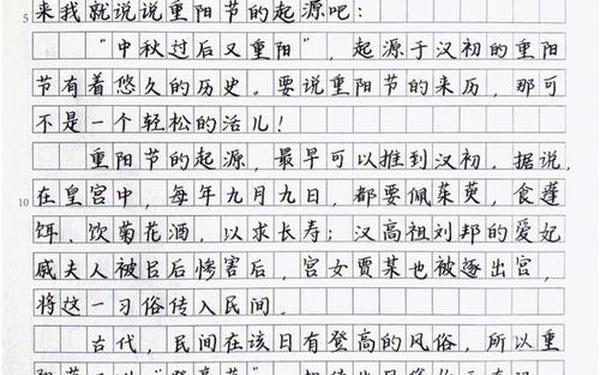 5 来我就说说重阳节的起源吧：
“中秋过后又重阳”，起源于汉初的重阳
节有着悠久的历史。要说重阳节的来历，那可
不是一个轻松的活儿！
重阳节的起源，最早可以推到汉初。据说，
10 在皇宫中，每年九月九日，都要佩茱萸，食蓬
饵、饮菊花酒，以求长寿；汉高祖刘邦的爱妃
戚夫人被吕后惨害后，宫女贾某也被逐出宫，
将这一习俗传入民间。
古代，民间在该日有登高的风俗，所以重